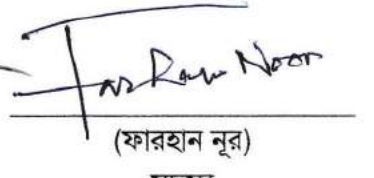 Farhan Noor
(ফারহান নূর)